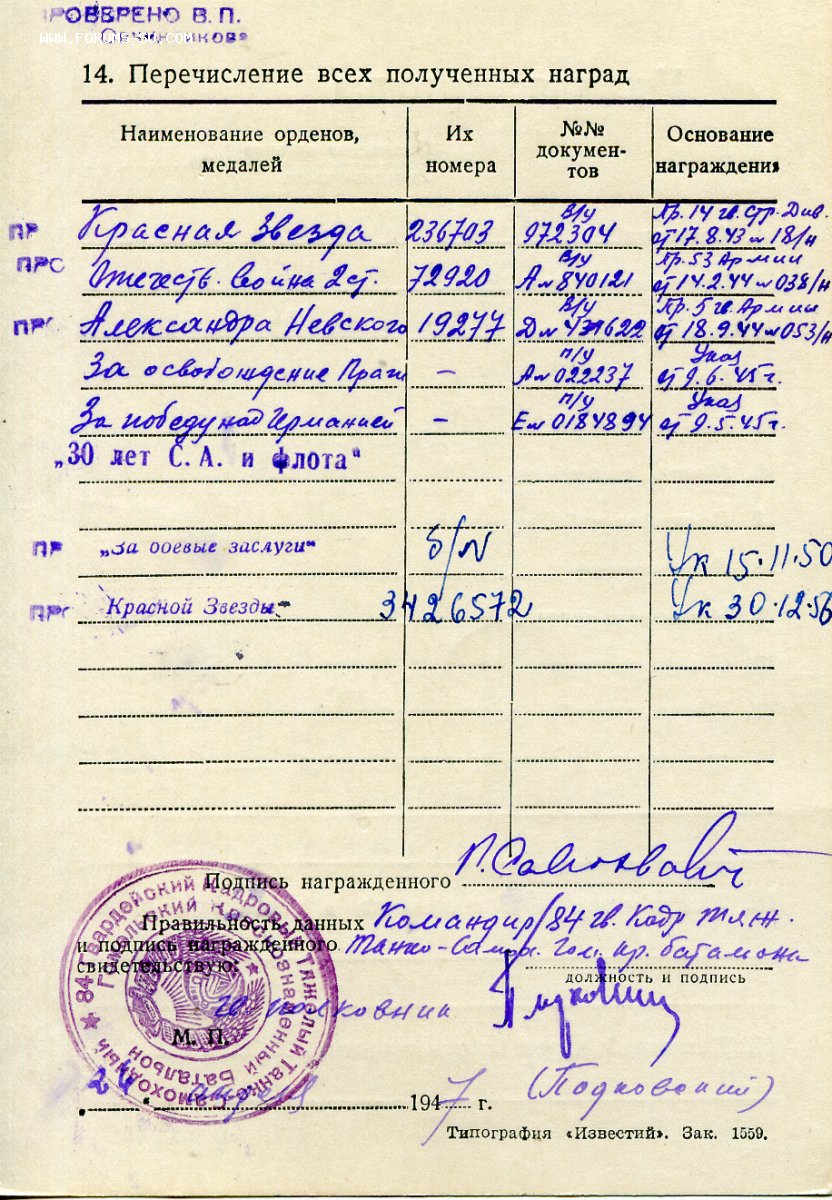 ПРОВЕРЕНО В. П.
WWW.FORUMS-SU.COM
14. Перечисление всех полученных наград
Наименование орденов, медалей | Их номера | №№ документов | Основание награждения
ПР Красная Звезда 236703 В/у 972304 Пр. 14 гв. Стр. Див. от 17.8.43 № 18/н
ПРО Отечеств. война 2 ст. 72920 В/у А № 840121 Пр. 53 Армии от 14.2.44 № 038/н
ПРО Александра Невского 19277 В/у Д № 431622 Пр. 5 гв. Армии от 18.9.44 № 053/н
За освобождение Праги – п/у А № 022237 Указ от 9.6.45 г.
За победу над Германией – п/у Е № 0184894 Указ от 9.5.45 г.
„30 лет С. А. и флота"
ПР „За боевые заслуги" б/N Ук 15.11.50
ПРО Красной Звезды 3426572 Ук 30.12.56
Подпись награжденного
Правильность данных Командир 84 гв. Кадр Тяж.
и подпись награжденного Танко-Самох. Гом. Кр. батальона
свидетельствую:
должность и подпись
гв. полковник
М. П.
84 Гвардейский Кадровый Тяжелый Танко-Самоходный
Гомельский Краснознаменный Батальон
24 апреля 1947 г. (Подковский)
Типография «Известий». Зак. 1559.